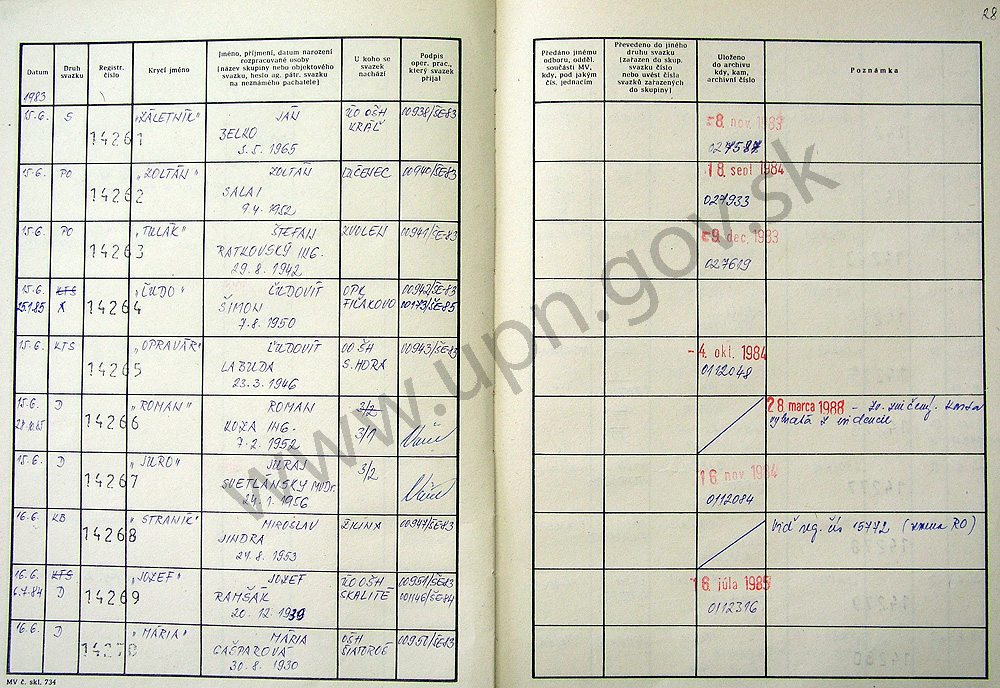 28
Datum
Druh svazku
Registr. číslo
Krycí jméno
Jméno, příjmení, datum narození rozpracované osoby (název skupiny nebo objektového svazku, heslo ag. pátr. svazku na neznámého pachatele)
U koho se svazek nachází
Podpis oper. prac., který svazek přijal
Předáno jinému odboru, odděl. součásti MV, kdy, pod jakým čís. jednacím
Převedeno do jiného druhu svazku (zařazen do skup. svazku číslo nebo uvést čísla svazků zařazených do skupiny)
Uloženo do archivu kdy, kam, archivní číslo
Poznámka
1983
15.6. S 14261 „ZÁLETNÍK" JÁN OŠH 00938/ŠE-83 8. nov. 1983
ZELKO KRÁĽ
3.5. 1965 027587
15.6. PO 14262 „ZOLTÁN" ZOLTÁN LUČENEC 00940/ŠE-83 18. sept 1984
SALAI 027933
9.4. 1952
15.6. PO 14263 „TULÁK" ŠTEFAN ZVOLEN 00941/ŠE-83 -9. dec. 1983
RATKOVSKÝ ING.
29.8. 1942 027619
15.6. KTS 14264 „ĽUDO" ĽUDOVÍT OPK 00942/ŠE-83
25.1.85 X ŠIMON FIĽAKOVO 00173/ŠE-85
7.8. 1950
15.6. KTS 14265 „OPRAVÁR" ĽUDOVÍT OO ŠH 00943/ŠE-83 -4. okt. 1984
LABUDA S. HORA 0112048
23.3. 1946
15.6. D 14266 „ROMAN" ROMAN 3/2 28 marca 1988 - zv. zničený. karta
KOZA ING. 3/1 vyňatá z evidencie
7.2. 1952
15.6. D 14267 „JURO" JURAJ 3/2 16 nov. 1984
SVETLANSKY MUDr.
24.1. 1956 0112084
16.6. KB 14268 „STRANÍK" MIROSLAV ŽILINA 00947/ŠE-83 Viď reg. čís 15772 (zmena RO)
JINDRA
24.8. 1953
16.6. KTS 14269 „JOZEF" JOZEF OŠH 00951/ŠE-83 16 júla 1985
6.7.84 D RAMŠÁK SKALITÉ 00146/ŠE-84
20.12. 1939 0112316
16.6. D 14270 „MÁRIA" MÁRIA OŠH 00950/ŠE-83
GAŠPAROVÁ ŠIATOROŠ
30.8. 1930
MV č. skl. 734
www.upn.gov.sk